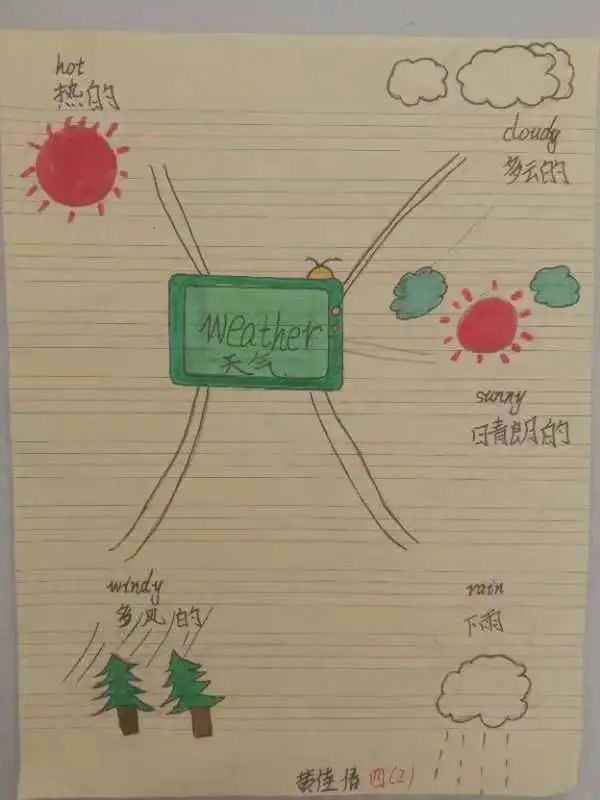 hot
热的
cloudy
多云的
weather
天气
sunny
晴朗的
windy
多风的
rain
下雨
黄佳倩 四(2)